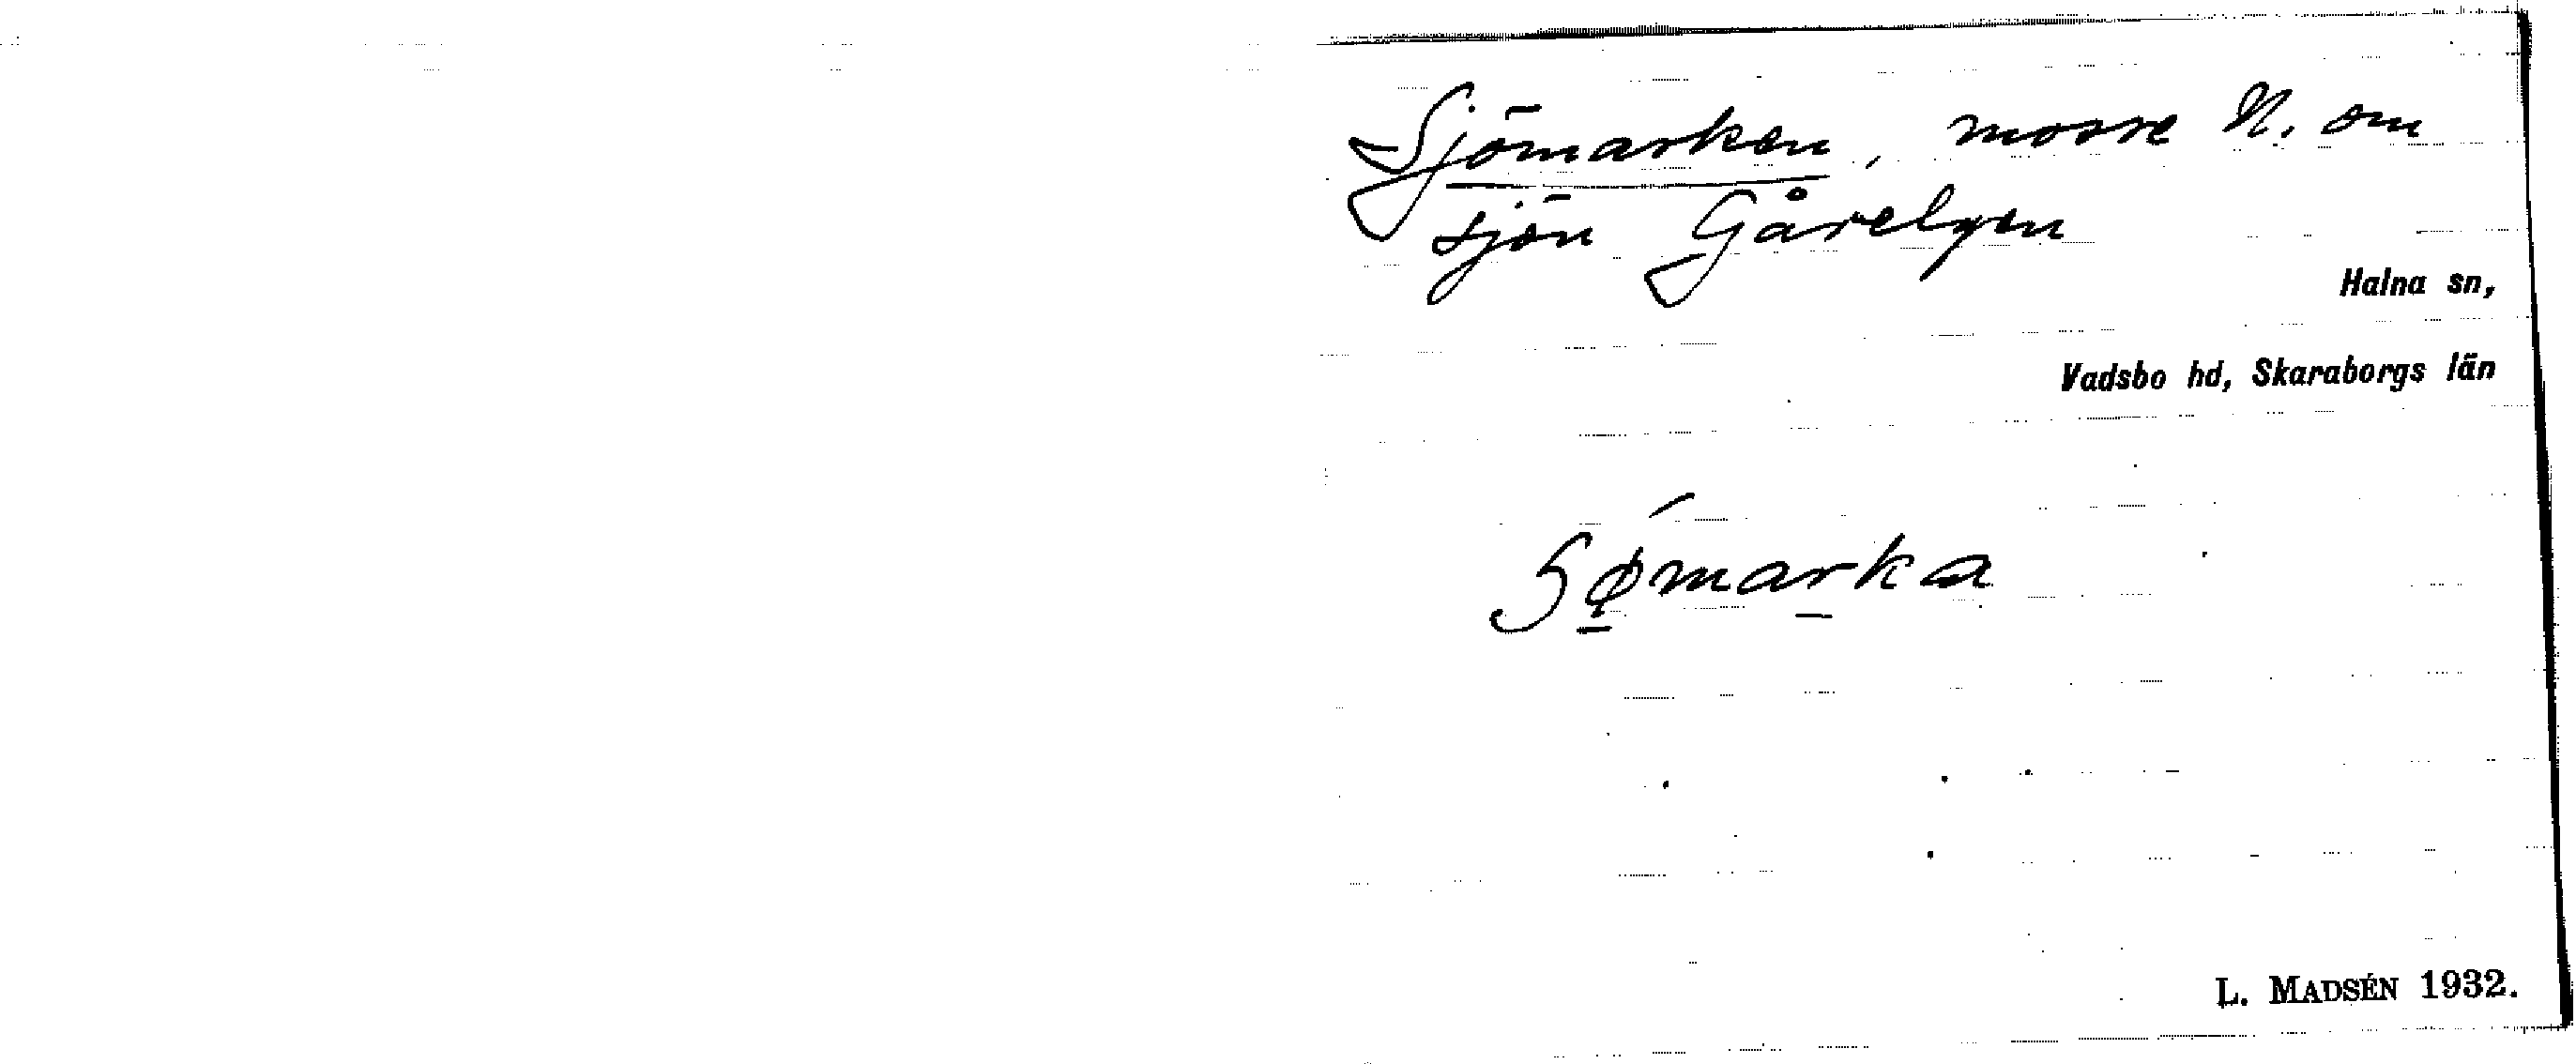 Sjömarken, mosse N. om
sjön Gårelgen
Halna sn,
Vadsbo hd, Skaraborgs län
Sømarka
L. MADSÉN 1932.